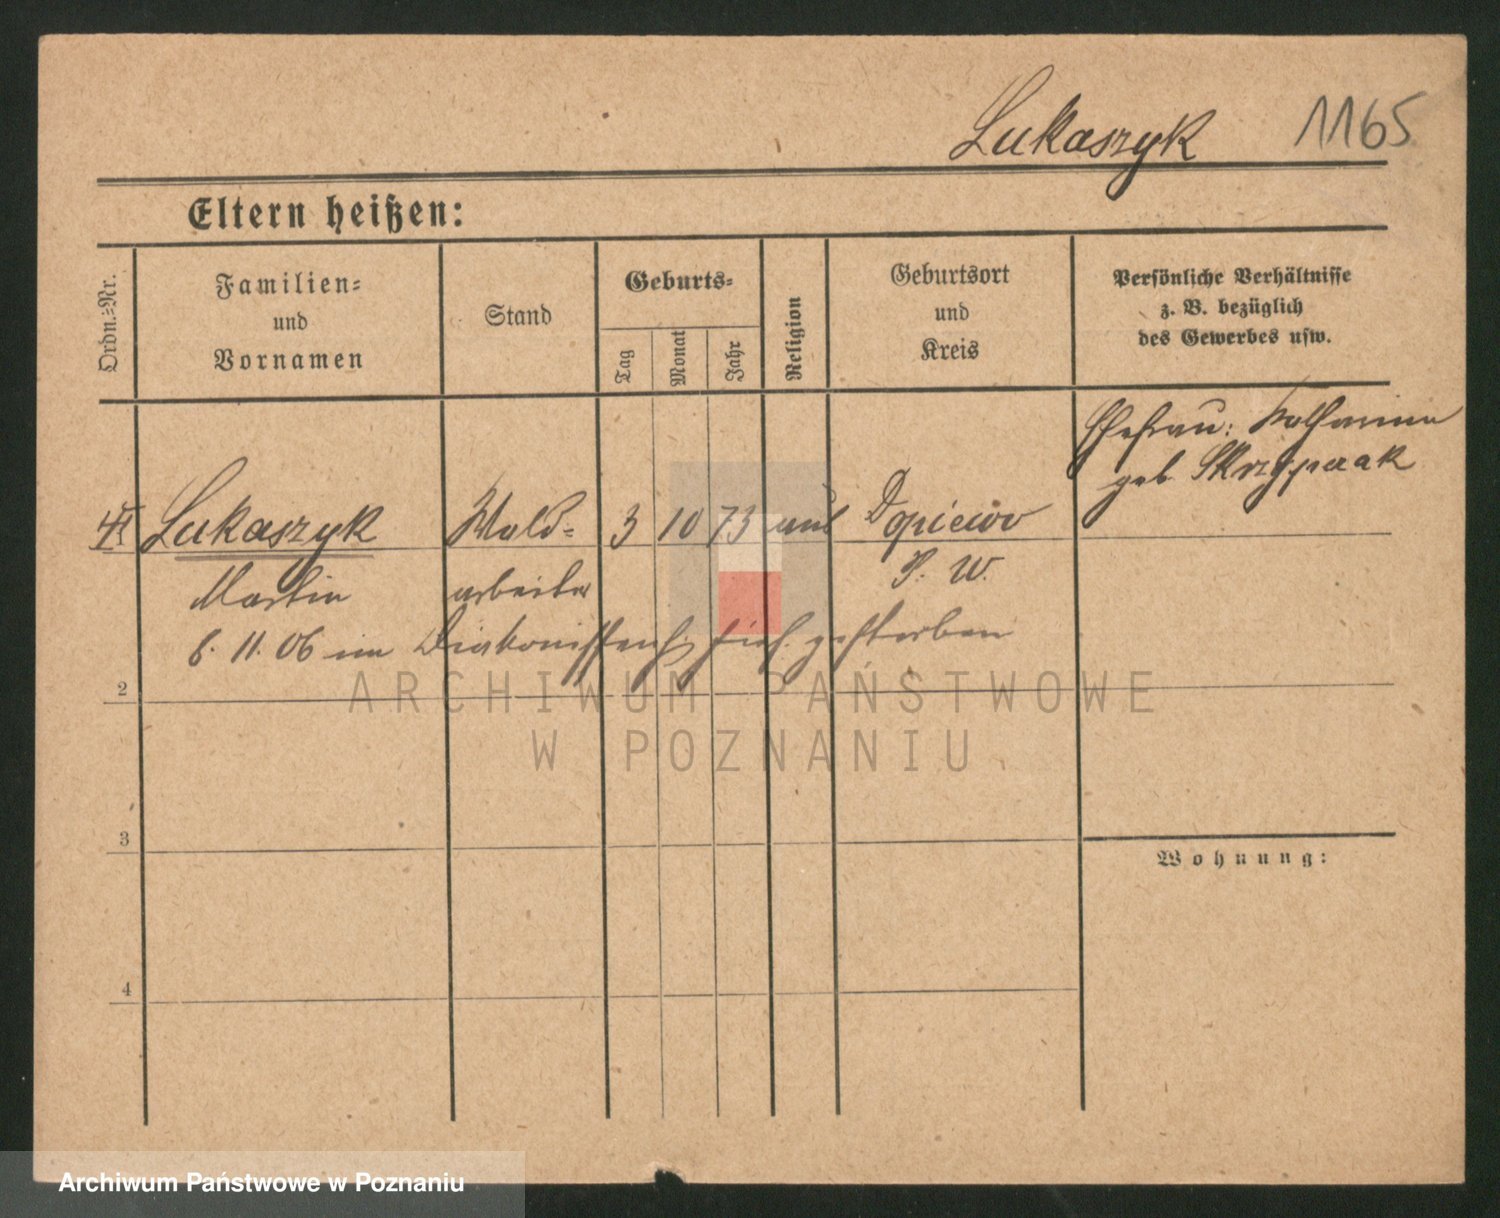 Lukaszyk 1165
Eltern heißen:
Ordn.-Nr.
Familien-
und
Vornamen
Stand
Geburts-
Tag
Monat
Jahr
Religion
Geburtsort
und
Kreis
Persönliche Verhältnisse
z. B. bezüglich
des Gewerbes usw.
Ehefrau: Katharina
geb. Skrzypczak
Lukaszyk Wald- 3 10 73 Dopiewo
Martin arbeiter P. W.
6. 11. 06 im Diakonissenh. gestorben
2
3
4
Wohnung:
ARCHIWUM PAŃSTWOWE
W POZNANIU
Archiwum Państwowe w Poznaniu